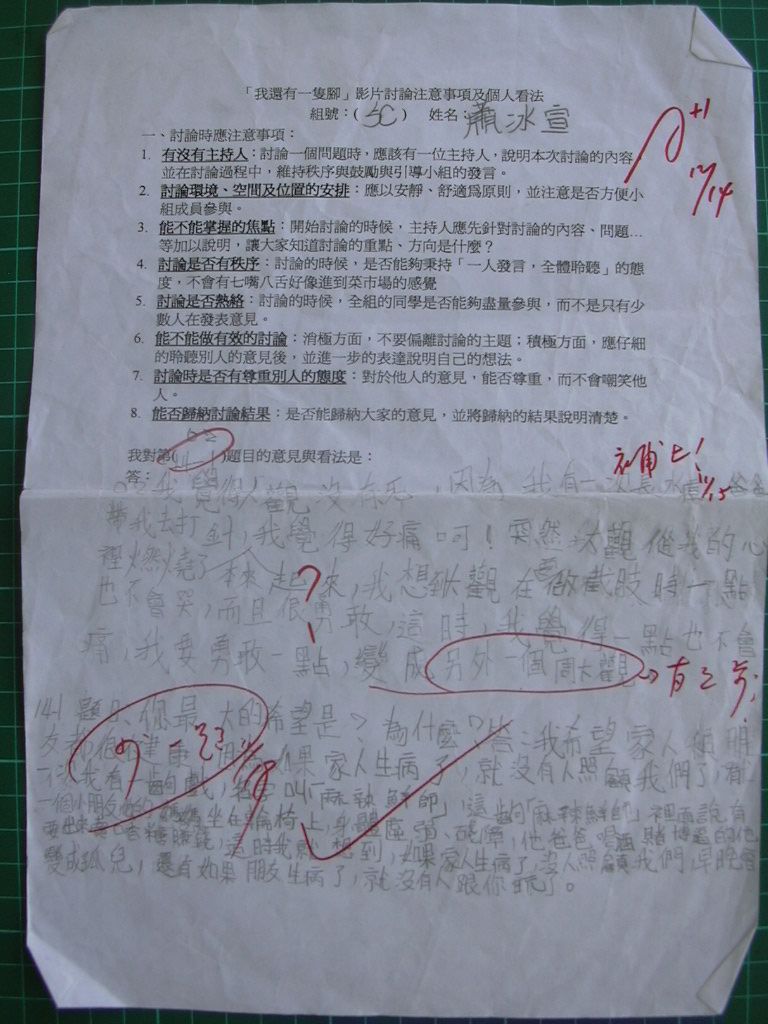 「我還有一隻腳」影片討論注意事項及個人看法
組號：( 5C )　姓名：蕭冰宣
A+1
12/14
一、討論時應注意事項：
1. 有沒有主持人：討論一個問題時，應該有一位主持人，說明本次討論的內容，
並在討論過程中，維持秩序與鼓勵與引導小組的發言。
2. 討論環境、空間及位置的安排：應以安靜、舒適為原則，並注意是否方便小
組成員參與。
3. 能不能掌握的焦點：開始討論的時候，主持人應先針對討論的內容、問題…
等加以說明，讓大家知道討論的重點、方向是什麼？
4. 討論是否有秩序：討論的時候，是否能夠秉持「一人發言，全體聆聽」的態
度，不會有七嘴八舌好像進到菜市場的感覺
5. 討論是否熱絡：討論的時候，全組的同學是否能夠盡量參與，而不是只有少
數人在發表意見。
6. 能不能做有效的討論：消極方面，不要偏離討論的主題；積極方面，應仔細
的聆聽別人的意見後，並進一步的表達說明自己的想法。
7. 討論時是否有尊重別人的態度：對於他人的意見，能否尊重，而不會嘲笑他
人。
8. 能否歸納討論結果：是否能歸納大家的意見，並將歸納的結果說明清楚。
我對第( )題目的意見與看法是：
補上！
12/15
答：我覺得大觀沒有死，因為我有一次長水痘，爸爸
帶我去打針，我覺得好痛呵！突然大觀從我的心
裡燃燒了起來，我想到大觀在做截肢時一點
也不會哭，而且很勇敢，這時，我覺得一點也不會
痛，我要勇敢一點，變成另外一個周大觀
14-1 題目：你最大的希望是？為什麼？答：我希望家人
友都很健康，因為如果家人生病了，就沒有人照顧我們了，有
一次我看一齣戲，名字叫「麻辣鮮師」，這齣「麻辣鮮師」裡面說有
一個小朋友的媽媽坐在輪椅上，身體虛弱，他爸爸喝酒賭博
賺錢，這時我就想到，如果家人生病了，沒人照顧我們，早晚會
變成孤兒，還有如果朋友生病了，就沒有人跟你玩了。